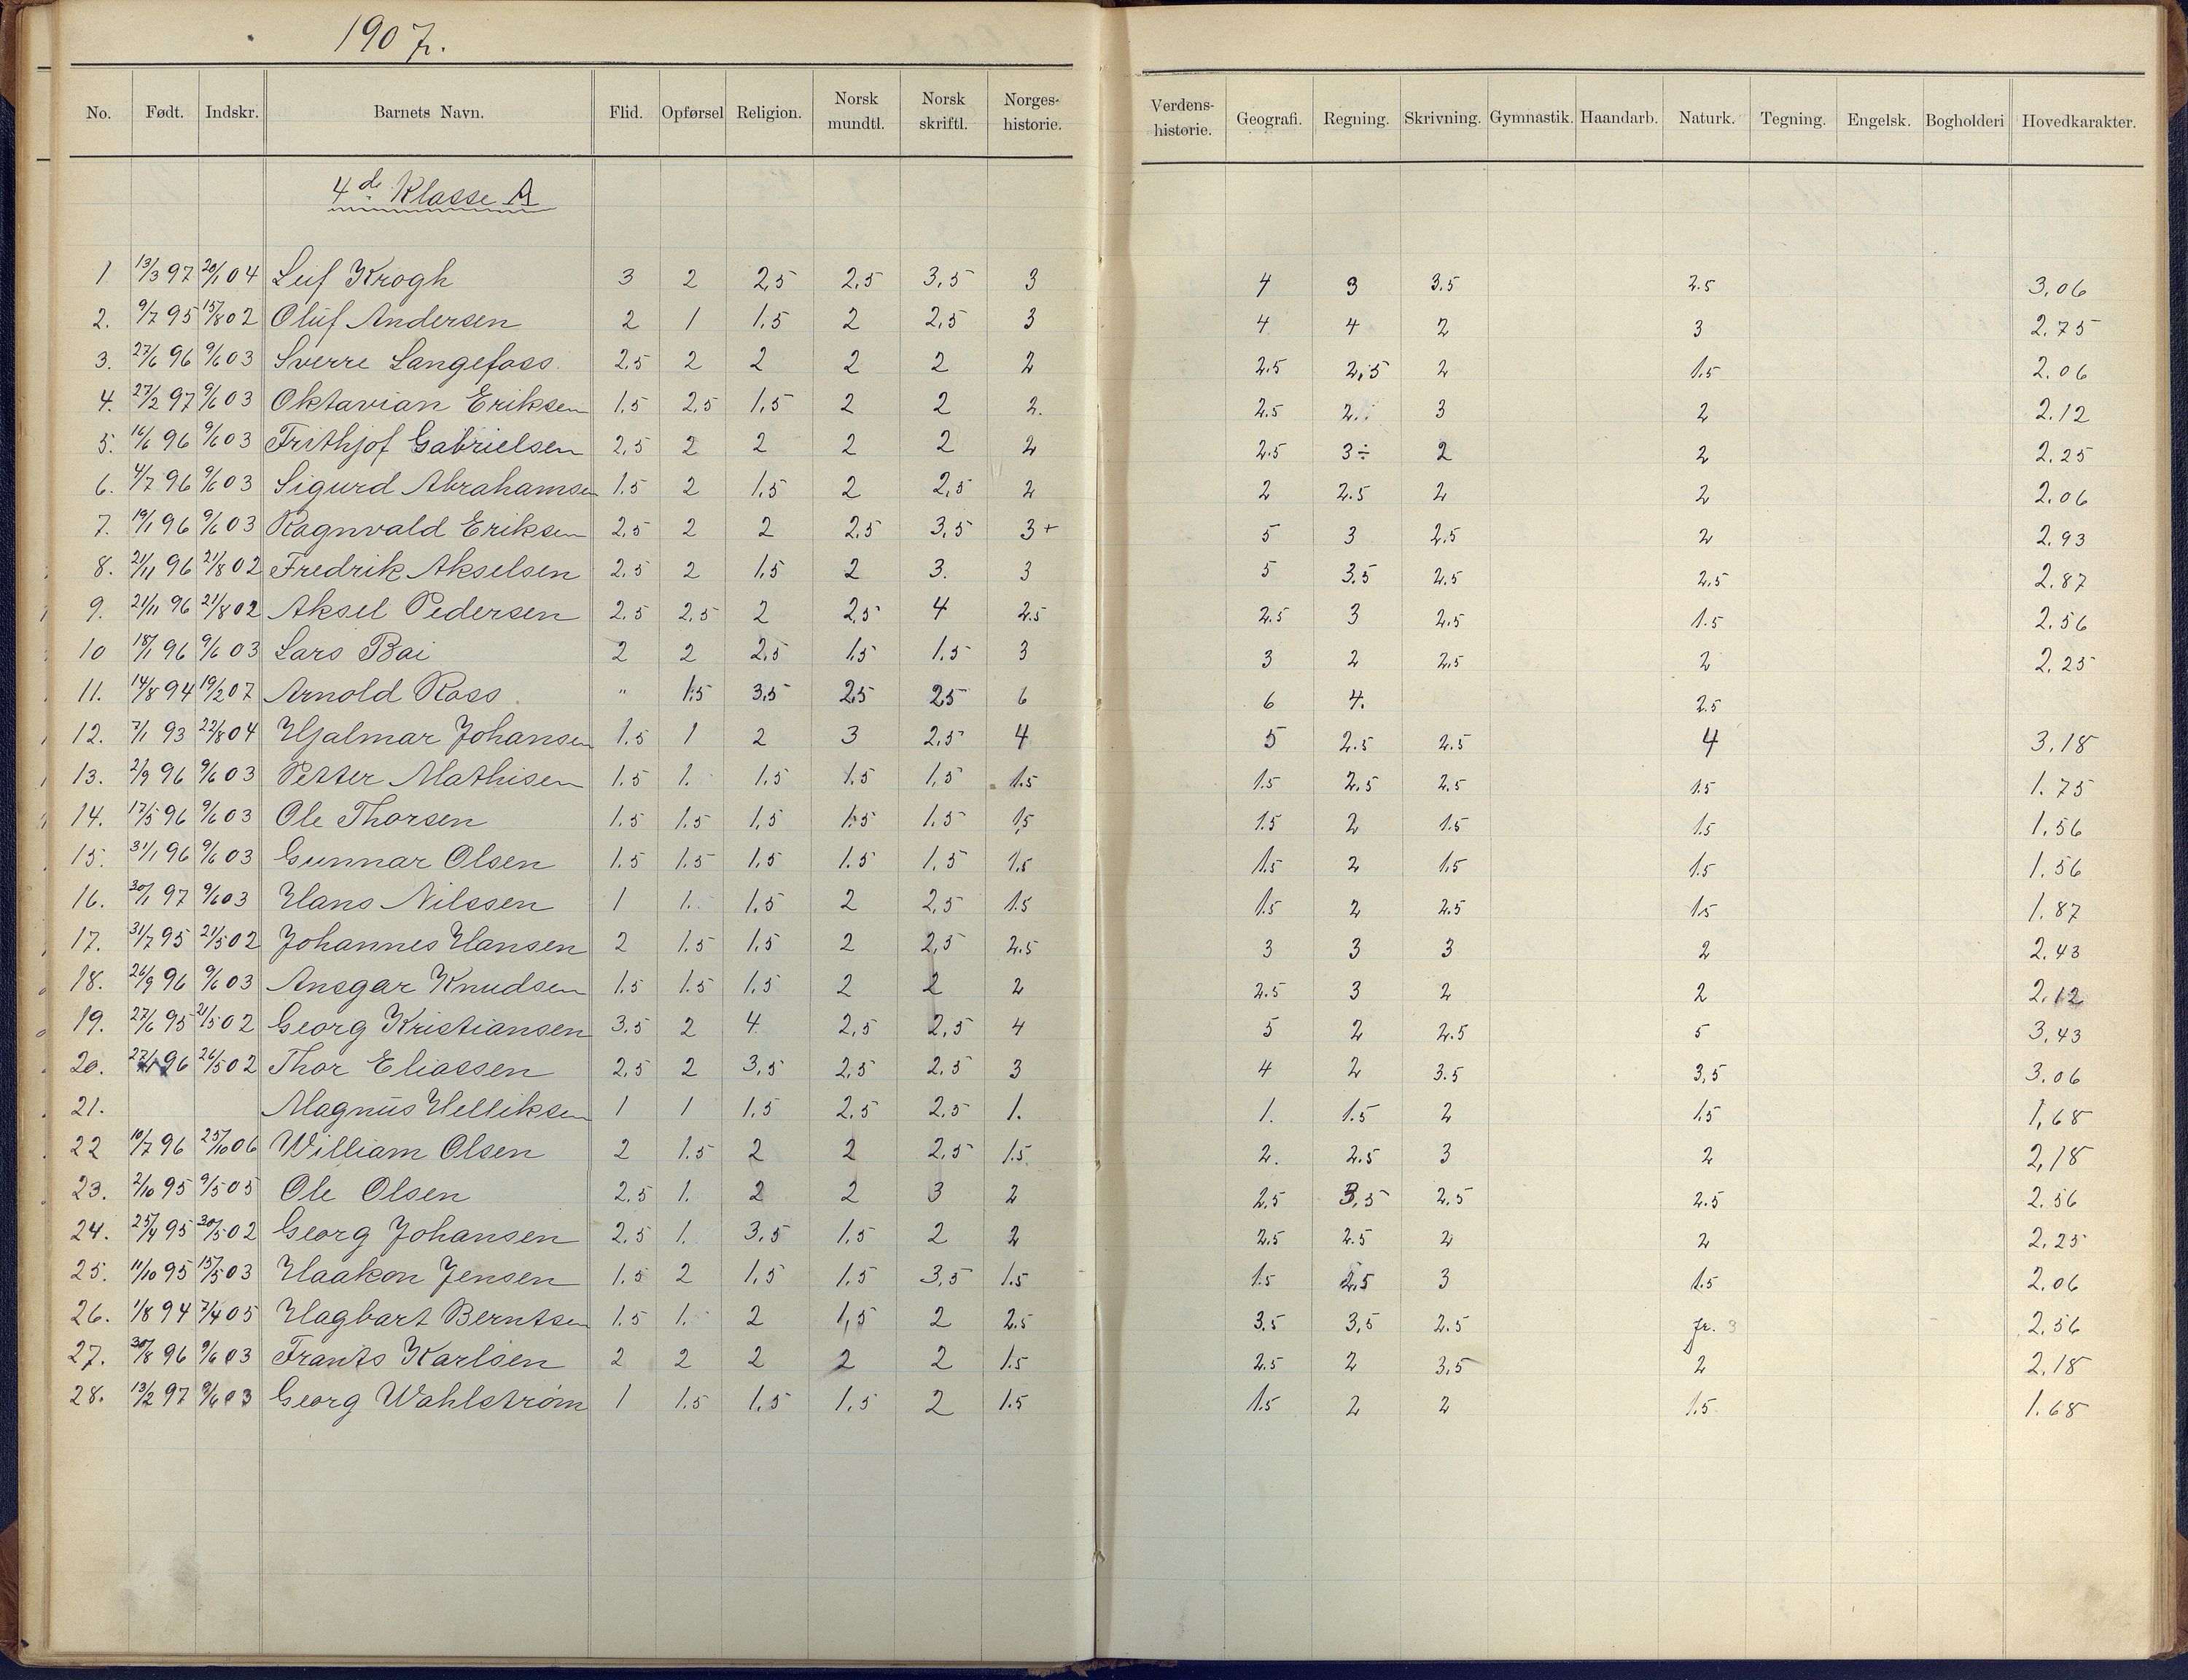 1907.
No. Født. Indskr. Barnets Navn. Flid. Opførsel Religion. Norsk mundtl. Norsk skriftl. Norges-historie. Verdens-historie. Geografi. Regning. Skrivning. Gymnastik. Haandarb. Naturk. Tegning. Engelsk. Bogholderi Hovedkarakter.
4de Klasse A
1 13/3 97 20/1 04 Leif Krogh 3 2 2,5 2,5 3,5 3 4 3 3.5 2.5 3,06
2. 9/7 95 15/8 02 Oluf Andersen 2 1 1.5 2 2,5 3 4 4 2 3 2.75
3. 27/6 96 9/6 03 Sverre Langefoss 2,5 2 2 2 2 2 2.5 2,5 2 1.5 2.06
4. 27/2 97 9/6 03 Oktavian Eriksen 1.5 2.5 1,5 2 2 2. 2.5 2. 3 2 2.12
5. 16/6 96 9/6 03 Frithjof Gabrielsen 2,5 2 2 2 2 2 2.5 3÷ 2 2 2.25
6. 4/7 96 9/6 03 Sigurd Abrahamsen 1.5 2 1.5 2 2,5 2 2 2.5 2 2 2.06
7. 19/1 96 9/6 03 Ragnvald Eriksen 2,5 2 2 2,5 3,5 3+ 5 3 2.5 2 2.93
8. 21/11 96 21/8 02 Fredrik Akselsen 2.5 2 1.5 2 3. 3 5 3.5 2.5 2,5 2.87
9. 21/11 96 21/8 02 Aksel Pedersen 2.5 2,5 2 2,5 4 2.5 2.5 3 2.5 1.5 2.56
10 18/1 96 9/6 03 Lars Bai 2 2 2,5 1.5 1.5 3 3 2 2.5 2 2.25
11. 14/8 94 19/2 07 Arnold Ross " 1.5 3.5 2.5 2.5 6 6 4. 2.5
12. 7/1 93 22/8 04 Hjalmar Johansen 1.5 1 2 3 2,5 4 5 2.5 2.5 4 3.18
13. 2/9 96 9/6 03 Petter Mathisen 1.5 1. 1.5 1.5 1,5 1.5 1.5 2,5 2.5 1.5 1.75
14. 17/5 96 9/6 03 Ole Thorsen 1.5 1.5 1,5 1.5 1.5 1.5 1.5 2 1.5 1.5 1,56
15. 31/1 96 9/6 03 Gunnar Olsen 1.5 1.5 1,5 1.5 1,5 1.5 1.5 2 1.5 1.5 1.56
16. 30/1 97 9/6 03 Hans Nilssen 1 1. 1,5 2 2,5 1.5 1.5 2 2.5 1.5 1.87
17. 31/7 95 21/5 02 Johannes Hansen 2 1.5 1.5 2 2,5 2.5 3 3 3 2 2.43
18. 26/9 96 9/6 03 Ansgar Knudsen 1.5 1.5 1.5 2 2 2 2.5 3 2 2 2.12
19. 27/6 95 21/5 02 Georg Kristiansen 3.5 2 4 2,5 2,5 4 5 2 2.5 5 3,43
20. 96 26/5 02 Thor Eliassen 2,5 2 3,5 2,5 2.5 3 4 2 3.5 3,5 3.06
21. Magnus Helliksen 1 1 1,5 2.5 2.5 1. 1. 1.5 2 1.5 1,68
22 10/7 96 25/10 06 William Olsen 2 1.5 2 2 2,5 1.5. 2. 2.5 3 2 2,18
23. 2/10 95 9/5 05 Ole Olsen 2.5 1. 2 2 3 2 2,5 3,5 2,5 2.5 2.56
24. 25/4 95 30/5 02 Georg Johansen 2.5 1. 3,5 1.5 2 2 2.5 2.5 2 2 2.25
25. 11/10 95 15/5 03 Haakon Jensen 1.5 2 1,5 1.5 3,5 1.5 1.5 2.5 3 1.5 2.06
26. 1/8 94 7/4 05 Hagbart Berntsen 1.5 1. 2 1,5 2 2.5 3.5 3,5 2.5 fr. 3 2,56
27. 30/8 96 9/6 03 Frants Karlsen 2 2 2 2 2 1.5 2.5 2 3,5 2 2,18
28. 13/2 97 9/6 03 Georg Wahlstrøm 1 1.5 1.5 1.5 2 1.5 1.5 2 2 1.5 1.68